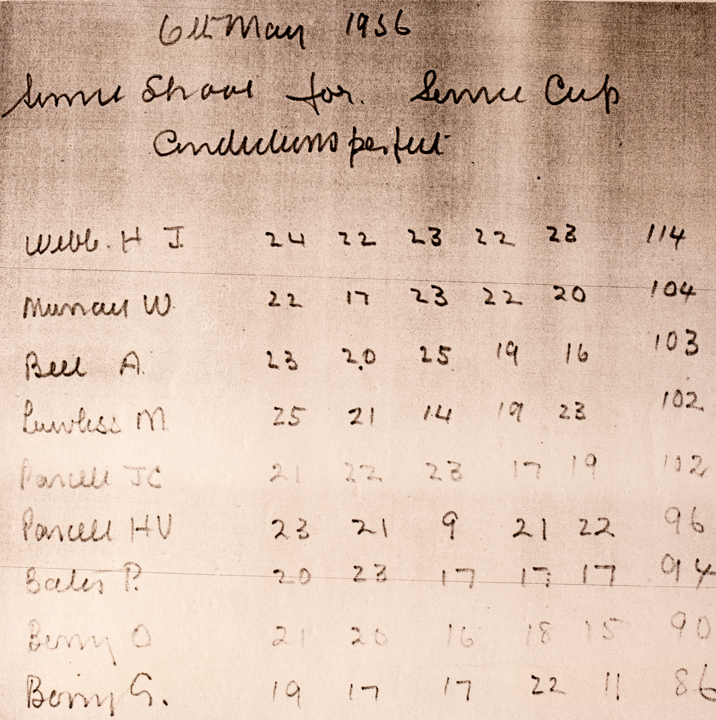 6th May 1936
Service Shoot for. Service Cup
Conditions perfect
Webb. H J. 24 22 23 22 23 114
W. 22 17 23 22 20 104
Bell A. 23 20 25 19 16 103
Lawless M. 25 21 14 19 23 102
Parcell JC 21 22 23 17 19 102
Parcell HV 23 21 9 21 22 96
Bates P. 20 23 17 17 17 94
Berry O 21 20 16 18 15 90
Berry G. 19 17 17 22 11 86